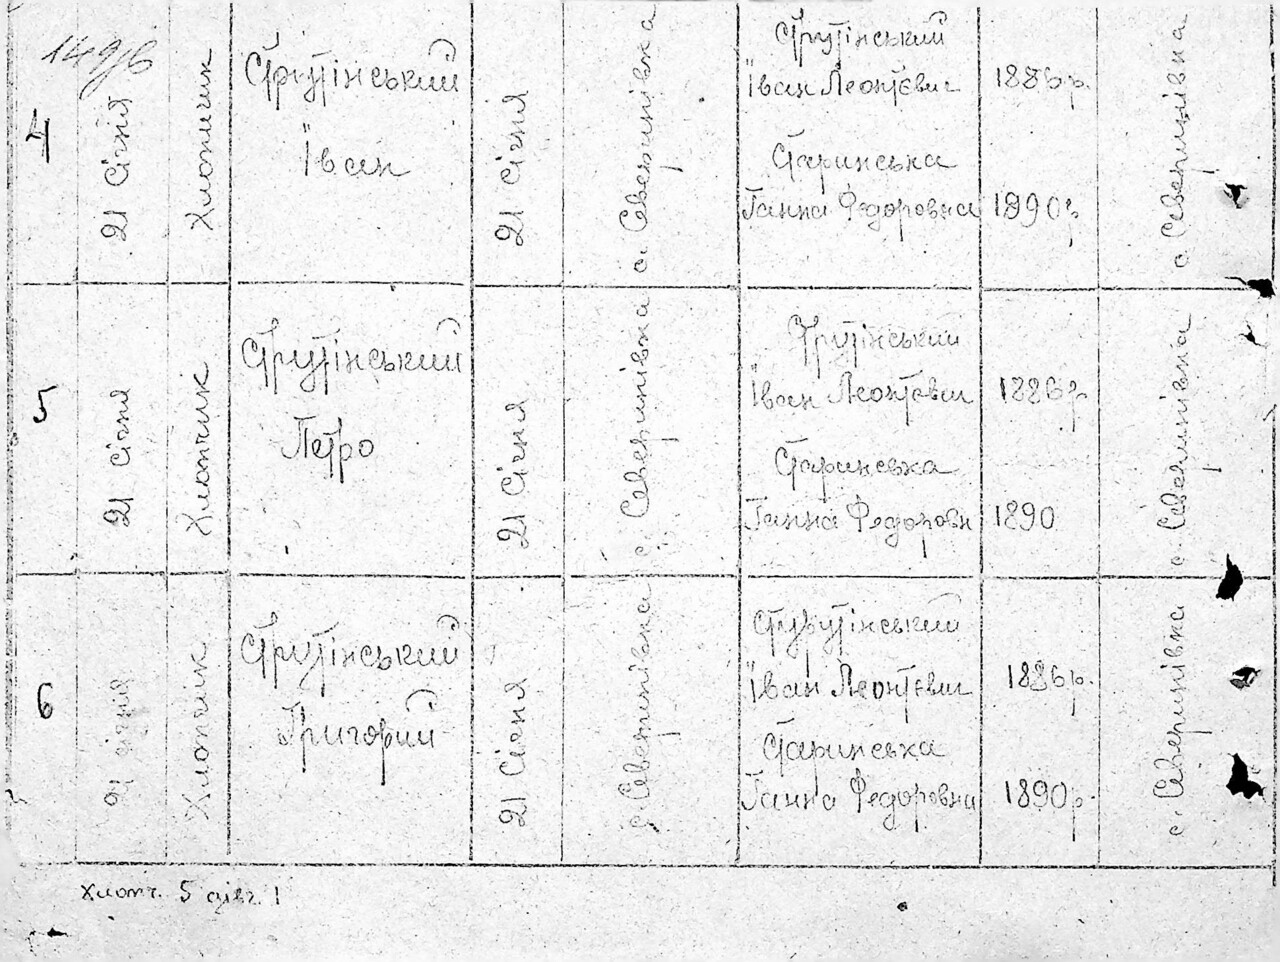 4
21 Січня
Хлопчик
Струтінський
Іван
21 Січня
с. Северинівка
Струтінський
Іван Леонтєвич
1886р.
Старинська
Ганна Федоровна
1890р
с. Северинівка
5
21 Січня
Хлопчик
Струтінський
Петро
21 Січня
с. Северинівка
Струтінський
Іван Леонтєвич
1886р.
Старинська
Ганна Федоровн
1890
с. Северинівка
6
21 січня
Хлопчик
Струтінський
Григорий
21 Січня
с. Северинівка
Струтінський
Іван Леонтєвич
1886р.
Старинська
Ганна Федоровна
1890р.
с. Северинівка
Хлопч. 5 дівч. 1